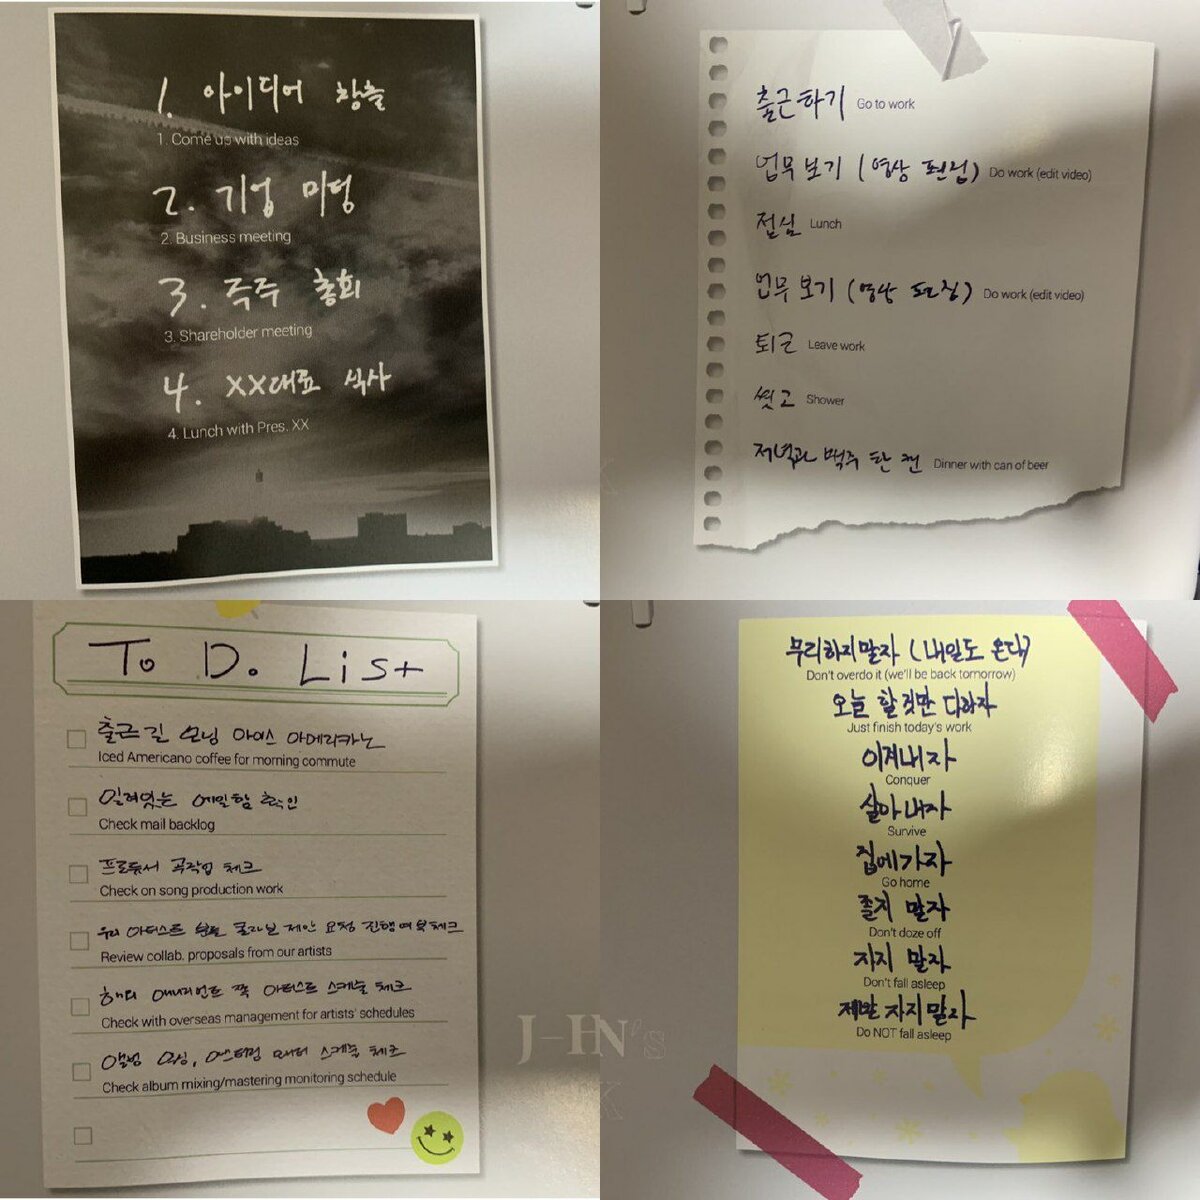 1. 아이디어 창출
1. Come up with ideas
2. 기업 미팅
2. Business meeting
3. 주주 총회
3. Shareholder meeting
4. XX대표 식사
4. Lunch with Pres. XX
출근하기 Go to work
업무보기 (영상 편집) Do work (edit video)
점심 Lunch
업무보기 (영상 편집) Do work (edit video)
퇴근 Leave work
씻고 Shower
저녁과 맥주 한 캔 Dinner with can of beer
To Do List
출근길 모닝 아이스 아메리카노
Iced Americano coffee for morning commute
밀려있는 메일함 확인
Check mail backlog
프로듀서 곡작업 체크
Check on song production work
우리 아티스트 분들 콜라보 제안 요청 진행여부 체크
Review collab. proposals from our artists
해외 매니지먼트 쪽 아티스트 스케줄 체크
Check with overseas management for artists' schedules
앨범 믹싱, 마스터링 모니터 스케줄 체크
Check album mixing/mastering monitoring schedule
무리하지말자 (내일도 온다)
Don't overdo it (we'll be back tomorrow)
오늘 할것만 다하자
Just finish today's work
이겨내자
Conquer
살아내자
Survive
집에가자
Go home
졸지 말자
Don't doze off
자지 말자
Don't fall asleep
제발 자지말자
Do NOT fall asleep
J-HN's